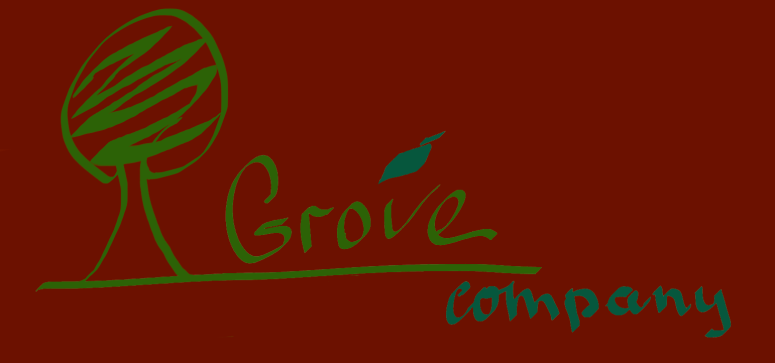 Grove
company